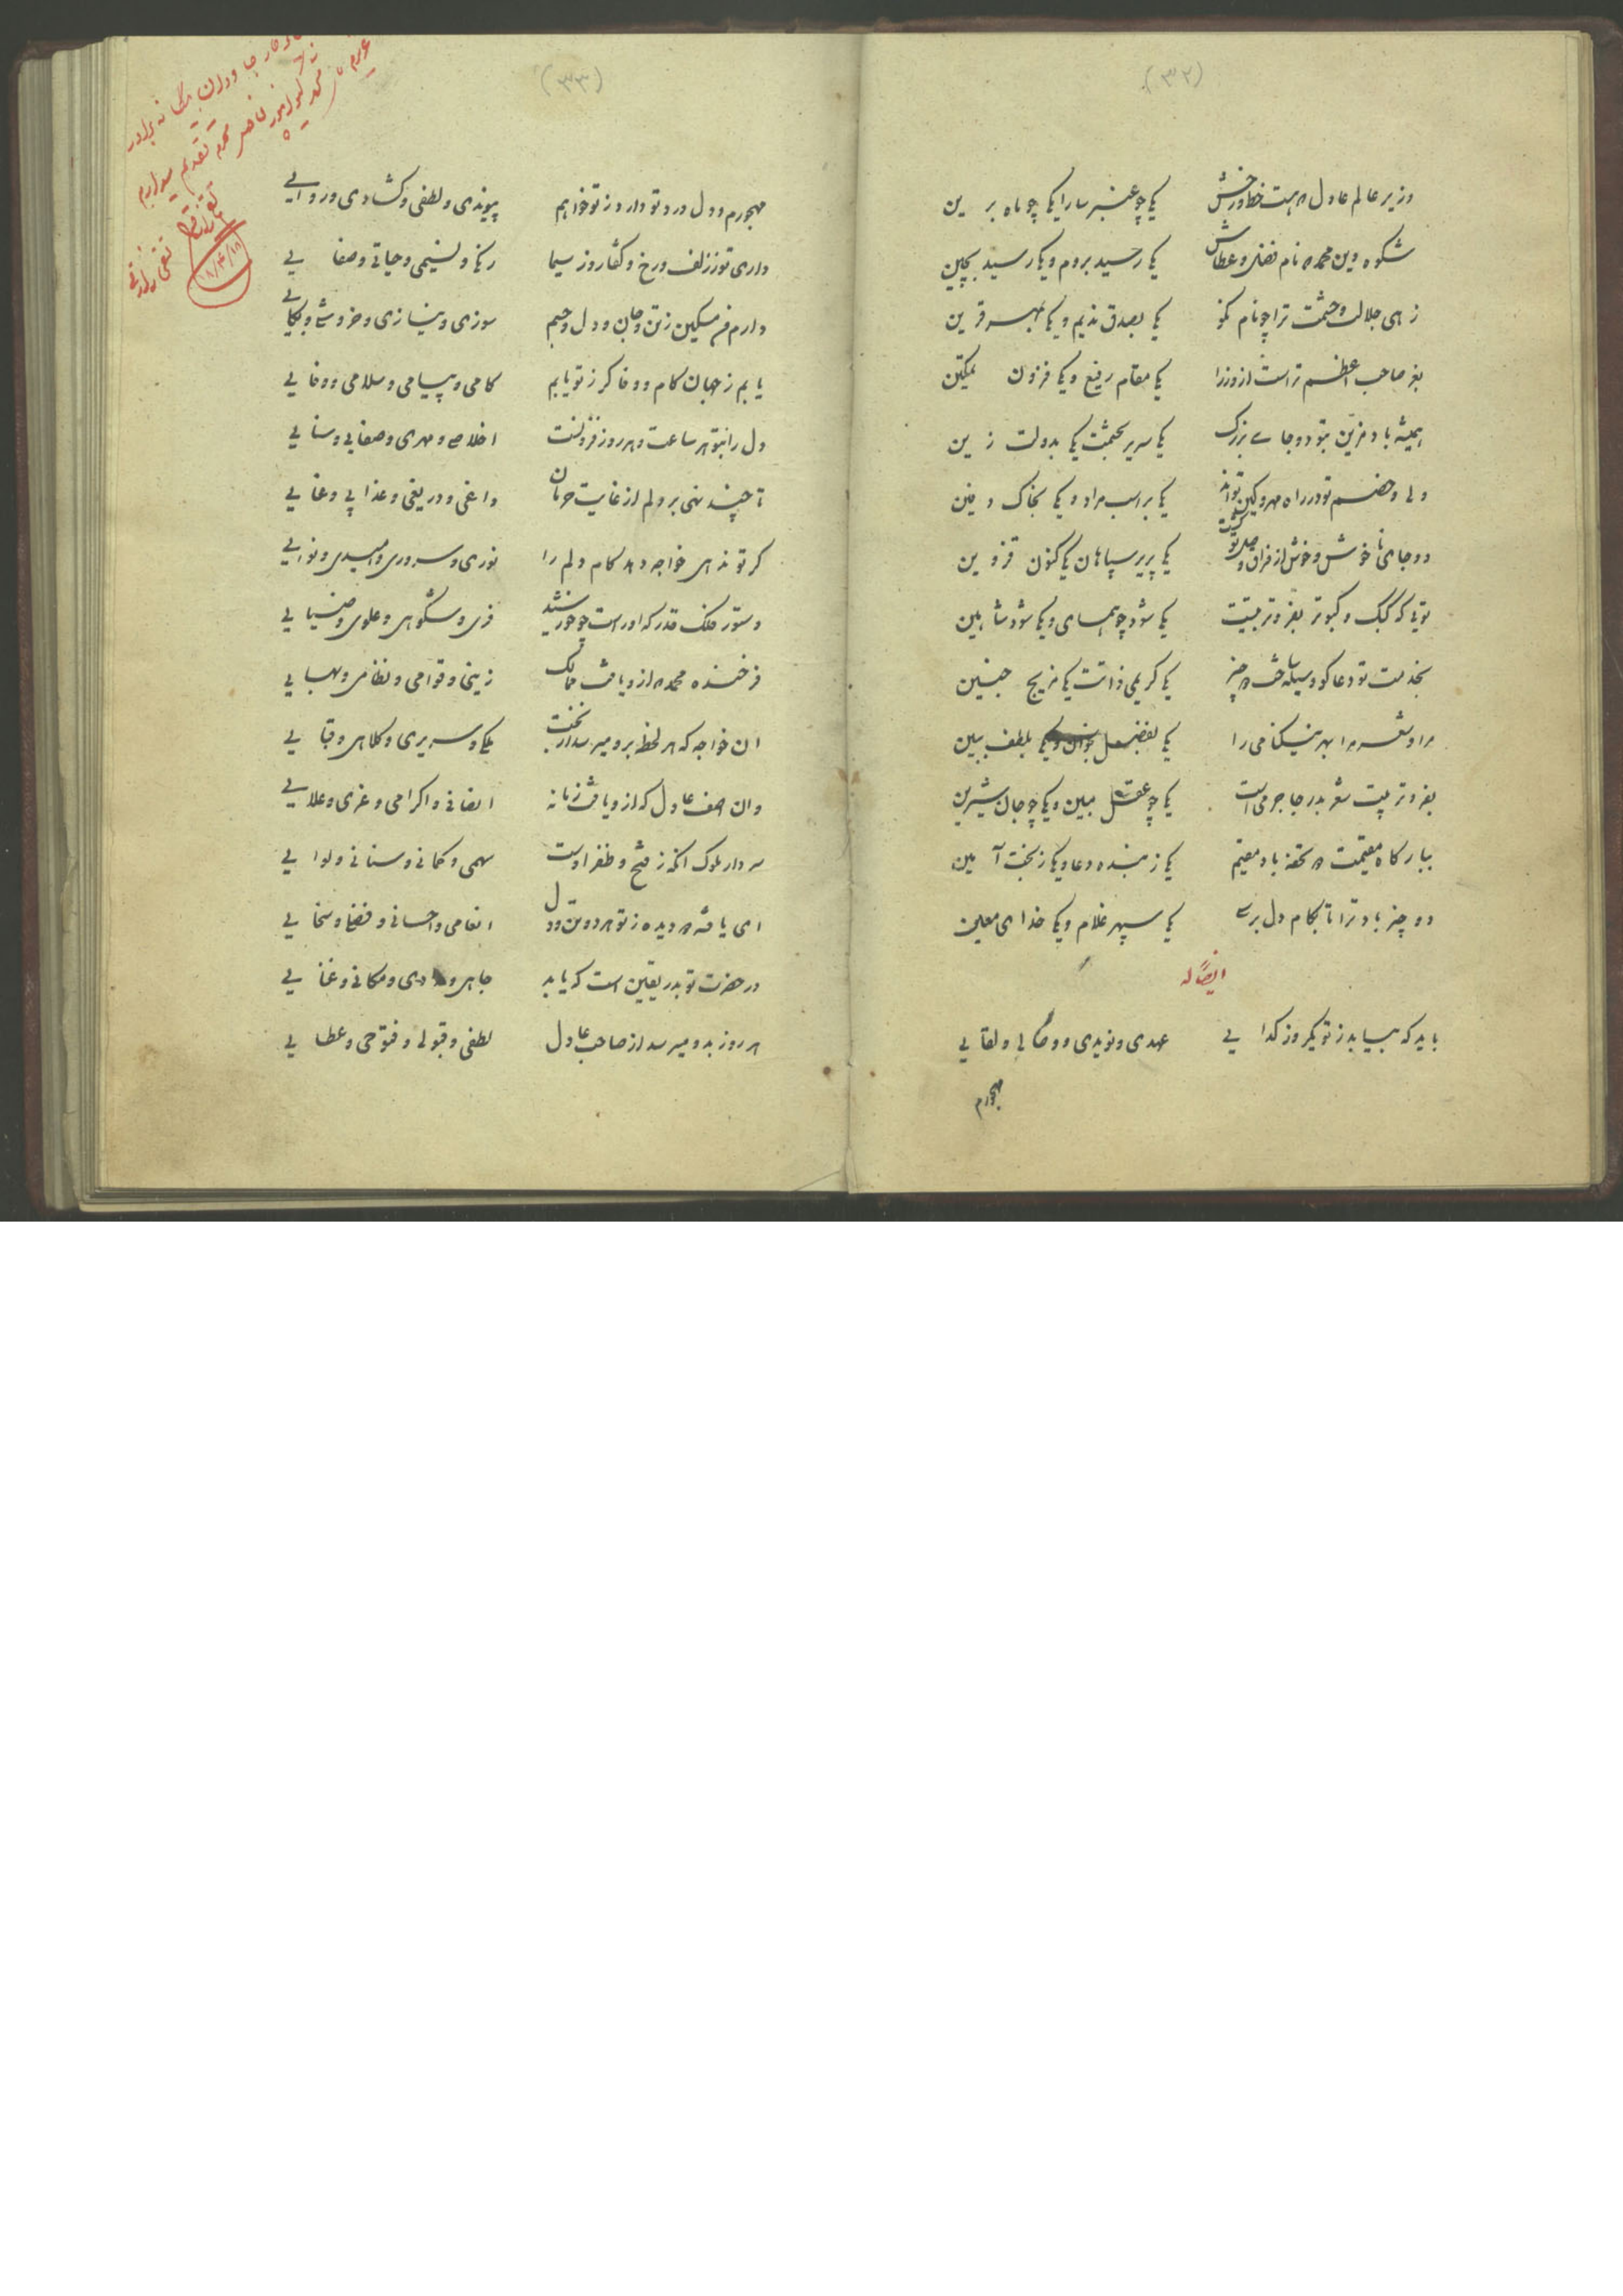 (۳۲)
وزیر عالم عادل که هست خط و رخش یکی چو عنبر سارا یکی چو ماه برین
شکوه دین محمد که نام فضل و عطاش یکی رسید بروم و یکی رسید بچین
زهی جلالت و حشمت ترا چو نام نکو یکی بصدق ندیم و یکی بمهر قرین
بغز صاحب اعظم تراست از وزرا یکی مقام رفیع و یکی فزون تمکین
همیشه باد مزین بتو دو جای بزرگ یکی سریر بحشمت یکی بدولت زین
ولی و خصم تو در راه مهر و کین تواند یکی بر اسب مراد و یکی بخاک دفین
دو جای ناخوش و خوش از فراق و وصل تو گشت یکی سپاهان یکی کنون قزوین
تویی که کبک و کبوتر بفر تربیتت یکی شود چو همای و یکی شود شاهین
بخدمت تو دعاگو وسیله ساخت دو چیز یکی کریمی ذاتت یکی مدیح چنین
مرا و شعر مرا بهر نیکنامی را یکی بفضل بخوان و یکی بلطف ببین
بفر تربیتت شعر بدر جاجرمی است یکی چو عقل مبین و یکی چو جان شیرین
ببارگاه مقیمت دو تحفه باد مقیم یکی ز بنده دعا و یکی ز بخت آمین
دو چیز باد ترا تا بکام دل برسی یکی سپهر غلام و یکی خدای معین
ایضا له
باید که بیابد ز تو یکروز گدایی عهدی و نویدی و وصالی و لقایی
مهجورم
(۳۳)
مهجورم و دل درد تو دارد ز تو خواهم پیوندی و لطفی و گشادی و روایی
داری تو ز زلف و رخ و گفتار و ز سیما رنگی و نسیمی و حیاتی و صفایی
دارم من مسکین ز تن و جان و دل و چشم سوزی و نیازی و خروشی و بکایی
یابم ز جهان کام و وفا گر ز تو یابم کامی و پیامی و سلامی و وفایی
دل را بتو هر ساعت و هر روز فزونست اخلاصی و مهری و صفایی و سنایی
تا چند نهی بر دلم از غایت حرمان داغی و دریغی و عذابی و عنایی
گر تو ندهی خواجه دهد کام دلم را نوری و سروری و امیدی و نوایی
دستور ملک قدر که او راست چو خورشید فری و شکوهی و علوی و ضیایی
فرخنده محمد که ازو یافت ممالک زینی و قوامی و نظامی و بهایی
آن خواجه که هر لحظه برو میرسد از بخت ملکی و سریری و کلاهی و قبایی
وان آصف عادل که ازو یافت زمانه انصافی و اکرامی و عزی و علایی
سردار ملوک آنکه ز فتح و ظفر اوست سهمی و کمانی و سنانی و لوایی
ای یافته هر دیده ز تو هر دو تن و دل انعامی و احسانی و فضلی و سخایی
در حضرت تو بدر یقین است که یابد جاهی و مرادی و مکانی و غنایی
هر روز بدو میرسد از صاحب عادل لطفی و قبولی و فتوحی و عطایی
یگانه برادر
تقدیم میدارم
۱۸/۴/۱۸
تقی